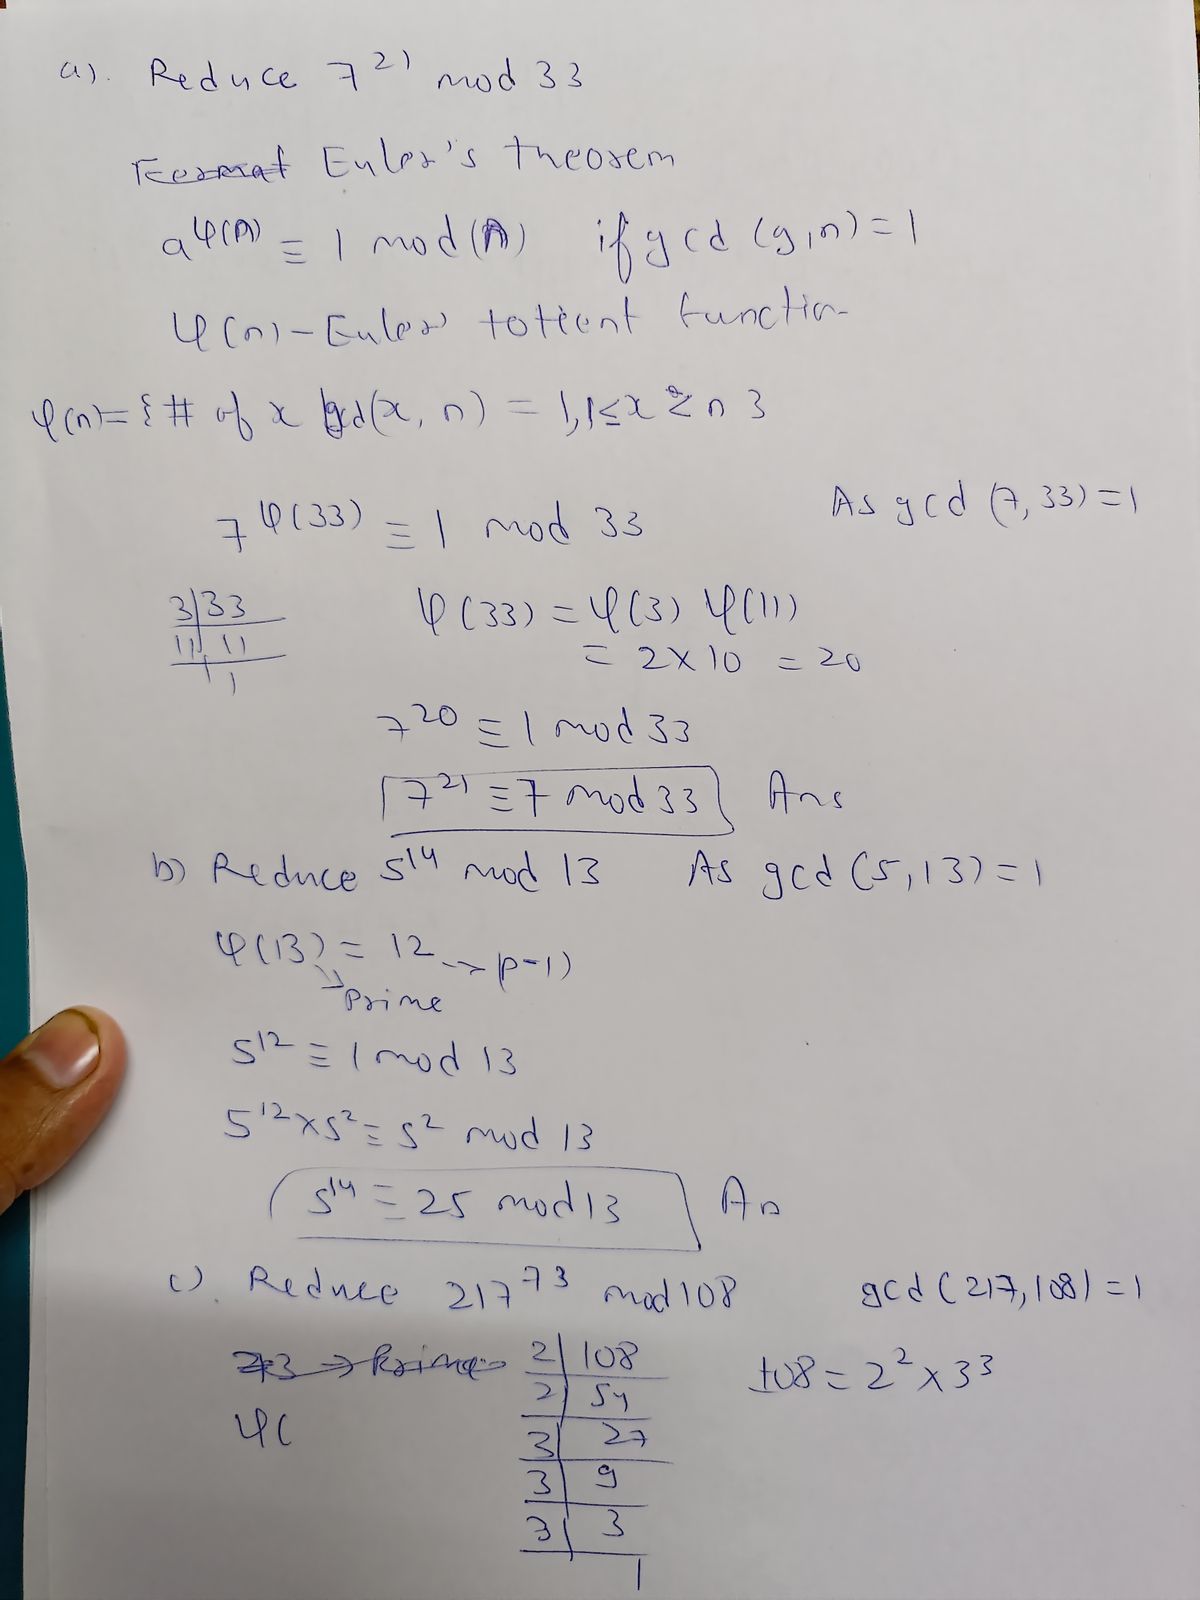 a). Reduce 7^21 mod 33
Format Euler's theorem
a^φ(n) ≡ 1 mod(n) if gcd (g,n)=1
φ(n) - Euler totient function
φ(n)= {# of x gcd(x, n) = 1, 1≤x≤n}
7^φ(33) ≡ 1 mod 33 As gcd (7,33)=1
3|33 φ(33) = φ(3) φ(11)
11|11 = 2x10 = 20
1
7^20 ≡ 1 mod 33
7^21 ≡ 7 mod 33 Ans
b) Reduce 5^14 mod 13 As gcd (5,13)=1
φ(13) = 12 -> p-1)
Prime
5^12 ≡ 1 mod 13
5^12 x 5^2 ≡ 5^2 mod 13
5^14 ≡ 25 mod 13 An
c). Reduce 217^73 mod 108 gcd (217,108)=1
73 → Prime 2|108 108 = 2^2 x 3^3
φ( 2|54
3|27
3|9
3|3
1